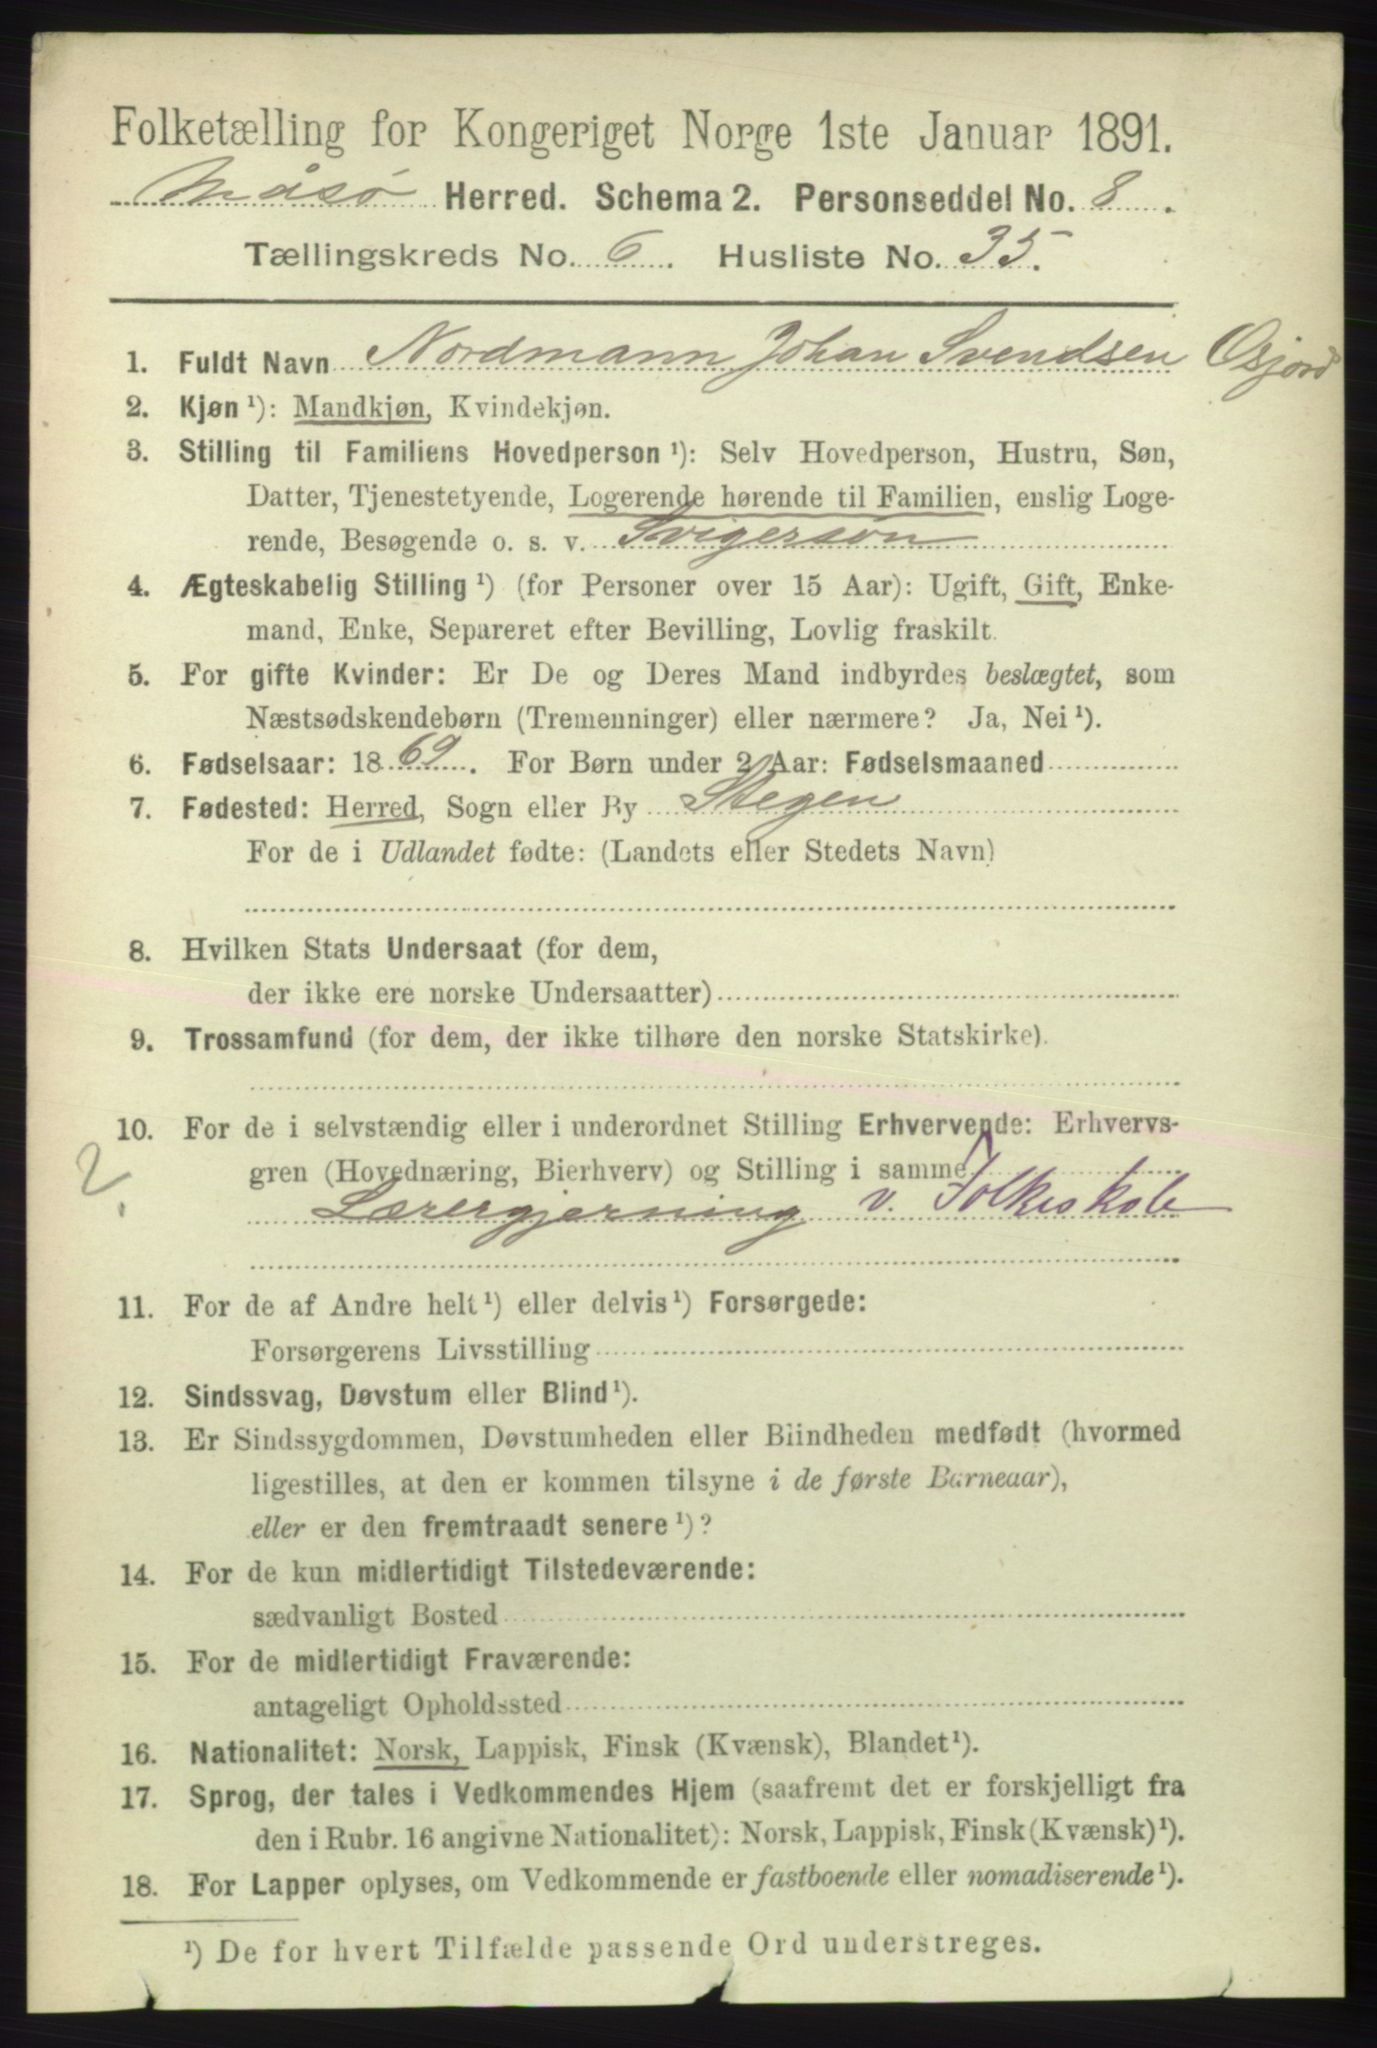 Folketælling for Kongeriget Norge 1ste Januar 1891.
Måsø Herred. Schema 2. Personseddel No. 8.
Tællingskreds No. 6. Husliste No. 35.
1. Fuldt Navn Nordmann Johan Svendsen Osjord
2. Kjøn ¹): Mandkjøn, Kvindekjøn.
3. Stilling til Familiens Hovedperson ¹): Selv Hovedperson, Hustru, Søn,
Datter, Tjenestetyende, Logerende hørende til Familien, enslig Loge-
rende, Besøgende o. s. v. Svigersøn
4. Ægteskabelig Stilling ¹) (for Personer over 15 Aar): Ugift, Gift, Enke-
mand, Enke, Separeret efter Bevilling, Lovlig fraskilt.
5. For gifte Kvinder: Er De og Deres Mand indbyrdes beslægtet, som
Næstsødskendebørn (Tremenninger) eller nærmere? Ja, Nei ¹).
6. Fødselsaar: 1869. For Børn under 2 Aar: Fødselsmaaned
7. Fødested: Herred, Sogn eller By Stegen
For de i Udlandet fødte: (Landets eller Stedets Navn)
8. Hvilken Stats Undersaat (for dem,
der ikke ere norske Undersaatter)
9. Trossamfund (for dem, der ikke tilhøre den norske Statskirke).
10. For de i selvstændig eller i underordnet Stilling Erhvervende: Erhvervs-
gren (Hovednæring, Bierhverv) og Stilling i samme
2.
Lærergjerning v. Folkeskole
11. For de af Andre helt ¹) eller delvis ¹) Forsørgede:
Forsørgerens Livsstilling
12. Sindssvag, Døvstum eller Blind ¹).
13. Er Sindssygdommen, Døvstumheden eller Blindheden medfødt (hvormed
ligestilles, at den er kommen tilsyne i de første Barneaar),
eller er den fremtraadt senere ¹)?
14. For de kun midlertidigt Tilstedeværende:
sædvanligt Bosted
15. For de midlertidigt Fraværende:
antageligt Opholdssted
16. Nationalitet: Norsk, Lappisk, Finsk (Kvænsk), Blandet ¹).
17. Sprog, der tales i Vedkommendes Hjem (saafremt det er forskjelligt fra
den i Rubr. 16 angivne Nationalitet): Norsk, Lappisk, Finsk (Kvænsk) ¹).
18. For Lapper oplyses, om Vedkommende er fastboende eller nomadiserende ¹).
¹) De for hvert Tilfælde passende Ord understreges.